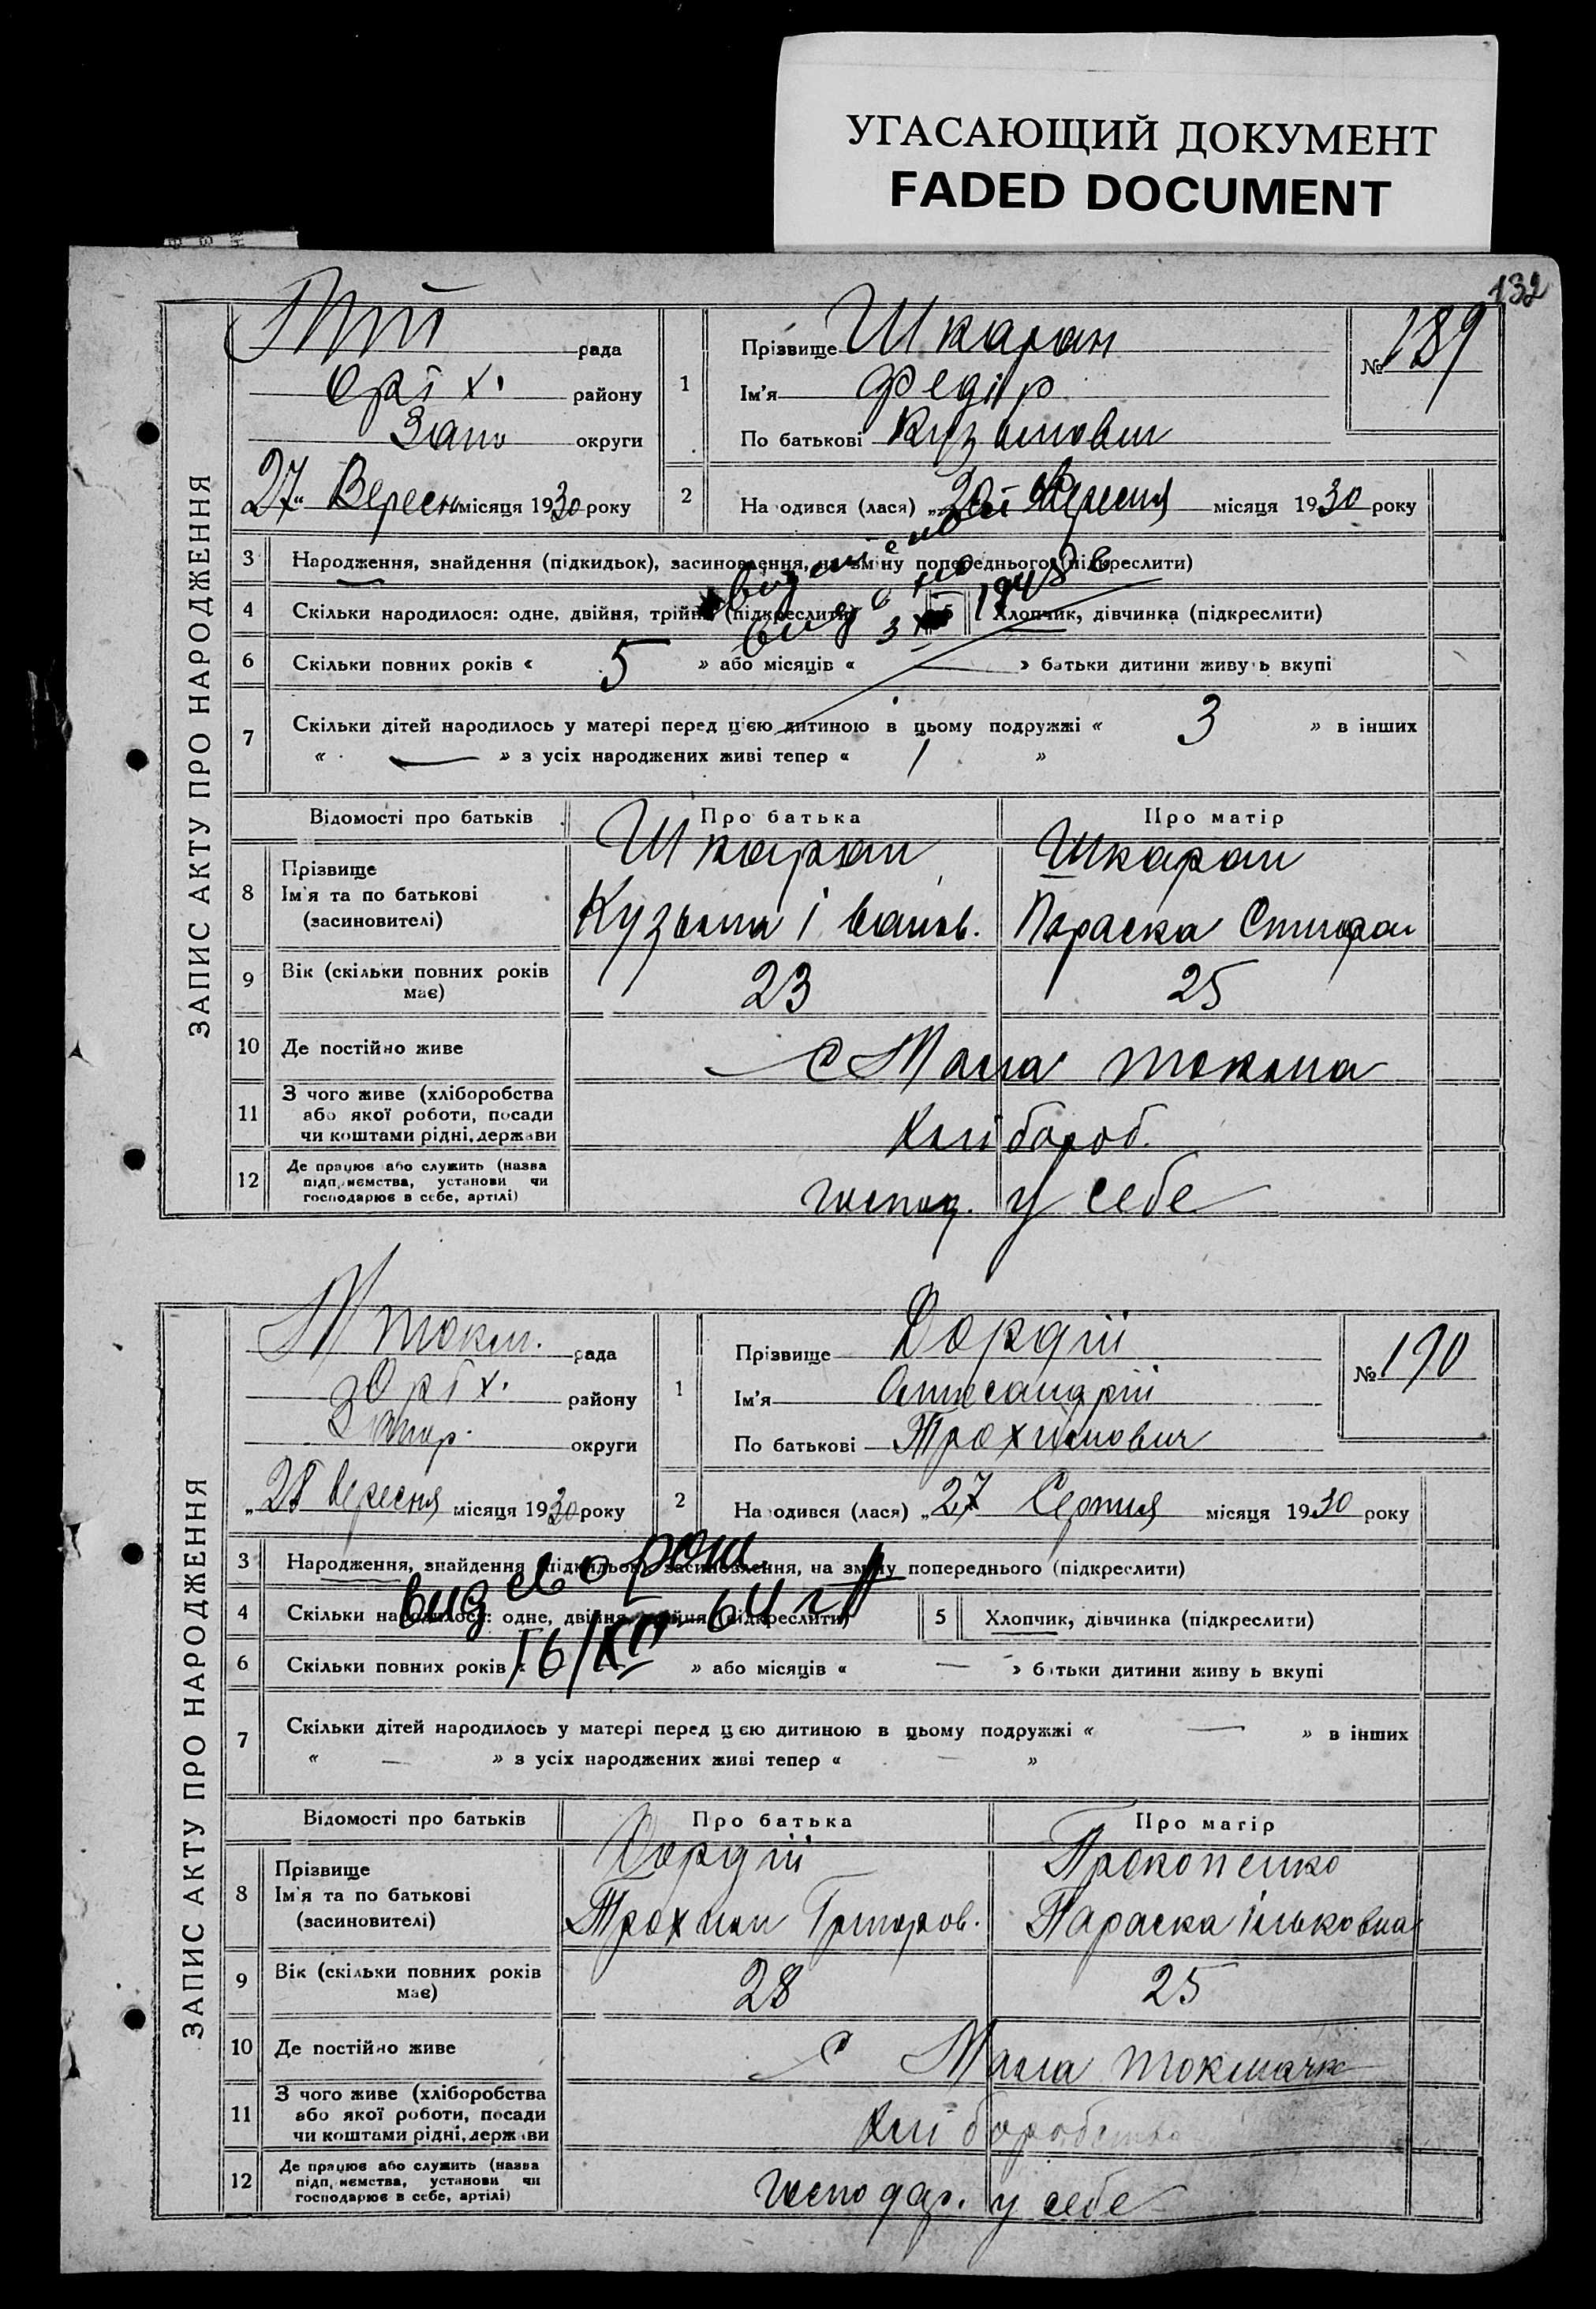 УГАСАЮЩИЙ ДОКУМЕНТ
FADED DOCUMENT
132
ЗАПИС АКТУ ПРО НАРОДЖЕННЯ
рада
Оріх. району
Запо округи
27 Вересн місяця 1930 року
1 Прізвище Шкаран
Ім'я Федір
По батькові Кузьмович
№ 189
2 На одився (лася) „ Вересня місяця 1930 року
3 Народження, знайдення (підкидьок), засиновлення, на зміну попереднього (підкреслити)
4 Скільки народилося: одне, двійня, трійня (підкреслити) 5 Хлопчик, дівчинка (підкреслити)
1948
6 Скільки повних років « 5 » або місяців « — » батьки дитини живу ь вкупі
7 Скільки дітей народилось у матері перед цією дитиною в цьому подружжі « 3 » в інших
« — » з усіх народжених живі тепер « 1 »
Відомості про батьків Про батька Про матір
8 Прізвище Шкаран Шкаран
Ім'я та по батькові
(засиновителі) Кузьма Іванов. Параска
9 Вік (скільки повних років має) 23 25
10 Де постійно живе с Мала Токма
11 З чого живе (хліборобства
або якої роботи, посади
чи коштами рідні, держави Хлібороб.
12 Де працює або служить (назва
підприємства, установи чи
господарює в себе, артілі) господ. у себе
ЗАПИС АКТУ ПРО НАРОДЖЕННЯ
М Токм. рада
Оріх. району
Запор. округи
„28 Вересня місяця 1930 року
1 Прізвище Дордій
Ім'я Олександрій
По батькові Трохимович
№ 190
2 На одився (лася) „27 Серпня місяця 1930 року
3 Народження, знайдення (підкидьок), засиновлення, на зміну попереднього (підкреслити)
4 Скільки народилося: одне, двійня, трійня (підкреслити) 5 Хлопчик, дівчинка (підкреслити)
16/XII-64 г
6 Скільки повних років « » або місяців « — » батьки дитини живу ь вкупі
7 Скільки дітей народилось у матері перед цєю дитиною в цьому подружжі « — » в інших
« — » з усіх народжених живі тепер « — »
Відомості про батьків Про батька Про матір
8 Прізвище Дордій Прокопенко
Ім'я та по батькові
(засиновителі) Трохим Григоров. Параска Ільковна
9 Вік (скільки повних років має) 28 25
10 Де постійно живе с Мала Токмачка
11 З чого живе (хліборобства
або якої роботи, посади
чи коштами рідні, держави Хліборобство
12 Де працює або служить (назва
підприємства, установи чи
господарює в себе, артілі) господар. у себе